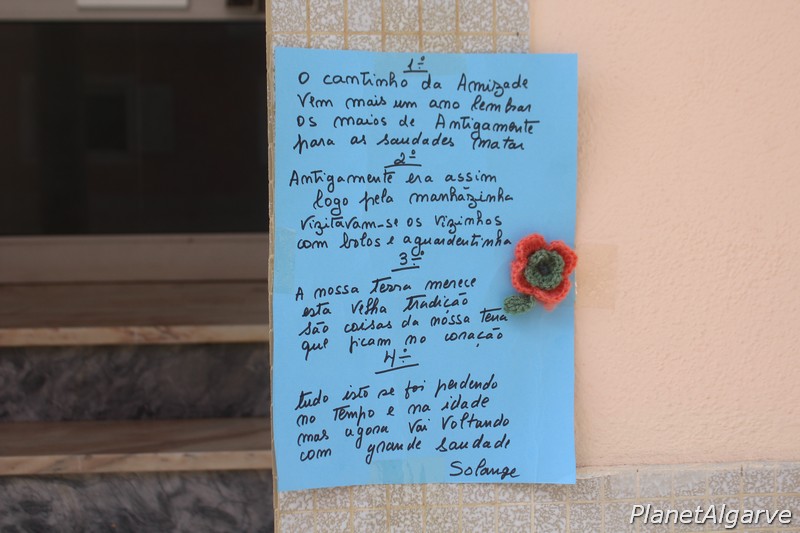 1º
O cantinho da Amizade
Vem mais um ano lembrar
os maios de Antigamente
para as saudades matar
2º
Antigamente era assim
logo pela manhãzinha
vizitavam-se os vizinhos
com bolos e aguardentinha
3º
A nossa Terra merece
esta velha tradição
são coisas da nóssa terra
que ficam no coração
4º
tudo isto se foi perdendo
no Tempo e na idade
mas agora vai voltando
com grande saudade
Solange
PlanetAlgarve